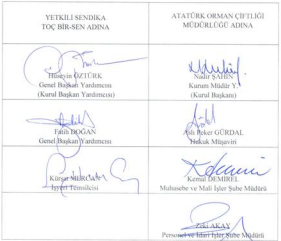 YETKİLİ SENDİKA
TOÇ BİR-SEN ADINA
ATATÜRK ORMAN ÇİFTLİĞİ
MÜDÜRLÜĞÜ ADINA
Hüseyin ÖZTÜRK
Genel Başkan Yardımcısı
(Kurul Başkan Yardımcısı)
Nadir ŞAHİN
Kurum Müdür Y.
(Kurul Başkanı)
Fatih DOĞAN
Genel Başkan Yardımcısı
Peker GÜRDAL
Hukuk Müşaviri
Kürşat
İşyeri Temsilcisi
Kemal DEMİREL
Muhasebe ve Mali İşler Şube Müdürü
Zeki AKAY
Personel ve İdari İşler Şube Müdürü